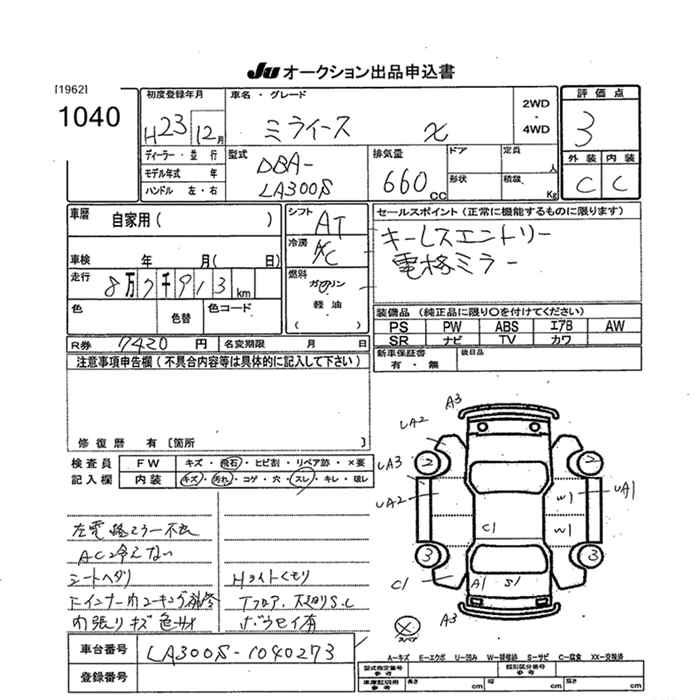 JU オークション出品申込書
[1962]
1040
初度登録年月
H23年 12月
車名・グレード
ミライース X
2WD
・
4WD
評価点
3
外装 内装
C C
ディーラー・並行
モデル年式 年
ハンドル 左・右
型式
DBA-
LA300S
排気量
660cc
ドア
定員 人
形状
積載 Kg
車歴 自家用( )
シフト AT
冷房 AC
セールスポイント(正常に機能するものに限ります)
キーレスエントリー
電格ミラー
車検 年 月( 日)
走行 8万7千913km
燃料 ガソリン
軽油
( )
色
色替
色コード
装備品(純正品に限り○を付けてください)
PS PW ABS エアB AW
SR ナビ TV カワ
R券 7420円
名変期限 月 日
新車保証書
有・無
後日品
注意事項申告欄(不具合内容等は具体的に記入して下さい)
修復歴 有〔箇所 〕
検査員
記入欄
FW キズ・飛石・ヒビ割・リペア跡・×要
内装 キズ・汚れ・コゲ・穴・スレ・キレ・破レ
左電格ミラー不良
AC冷えない
シートヘタリ
内張りキズ色サイ
Hライトくもり
Tフロア、
ボウセイ有
A3
UA2
UA3
2
2
UA2
W1
UA1
C1
W1
3
3
C1
A1
S1
A3
スペア
車台番号 LA300S-1040273
登録番号
A-キズ E-エクボ U-凹み W-補修跡 S-サビ C-腐食 XX-交換済
型式指定番号
参考
類別区分番号
参考
車庫証明用
参考
長さ cm
幅 cm
高さ cm